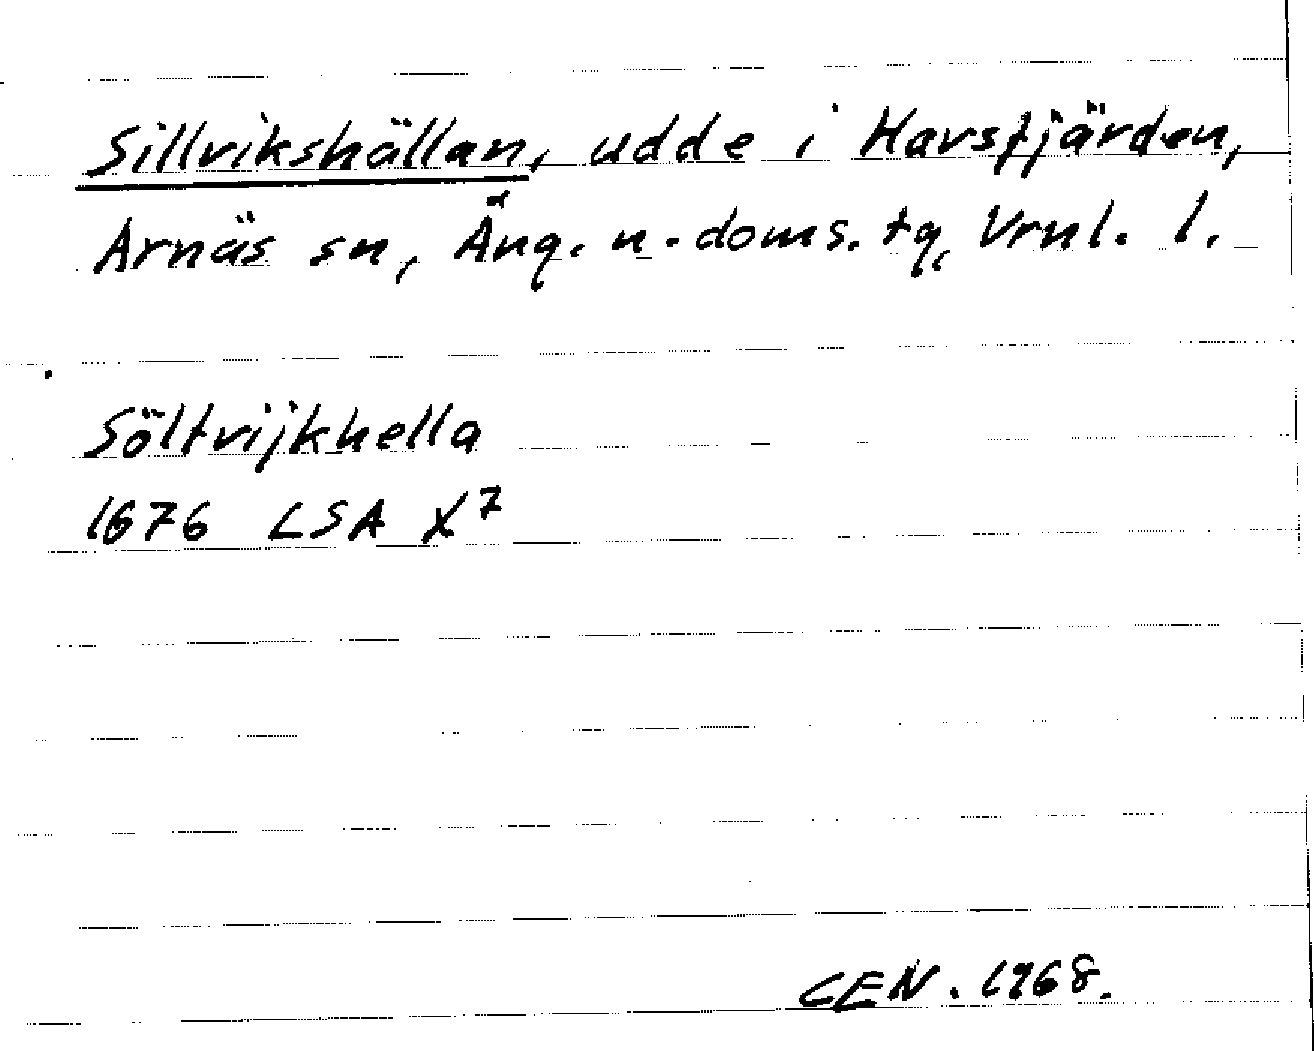 Sillvikshällan, udde i Havsfjärden,
Arnäs sn, Ång. n. doms. tg, Vrnl. l.
Söltvijkhella
1676 LSA X7
CEN. 1968.